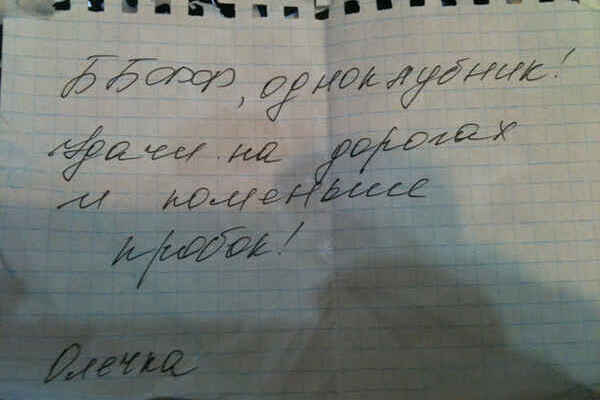 ББФФ, одноклубник!
Удачи на дорогах
и поменьше
пробок!
Олечка